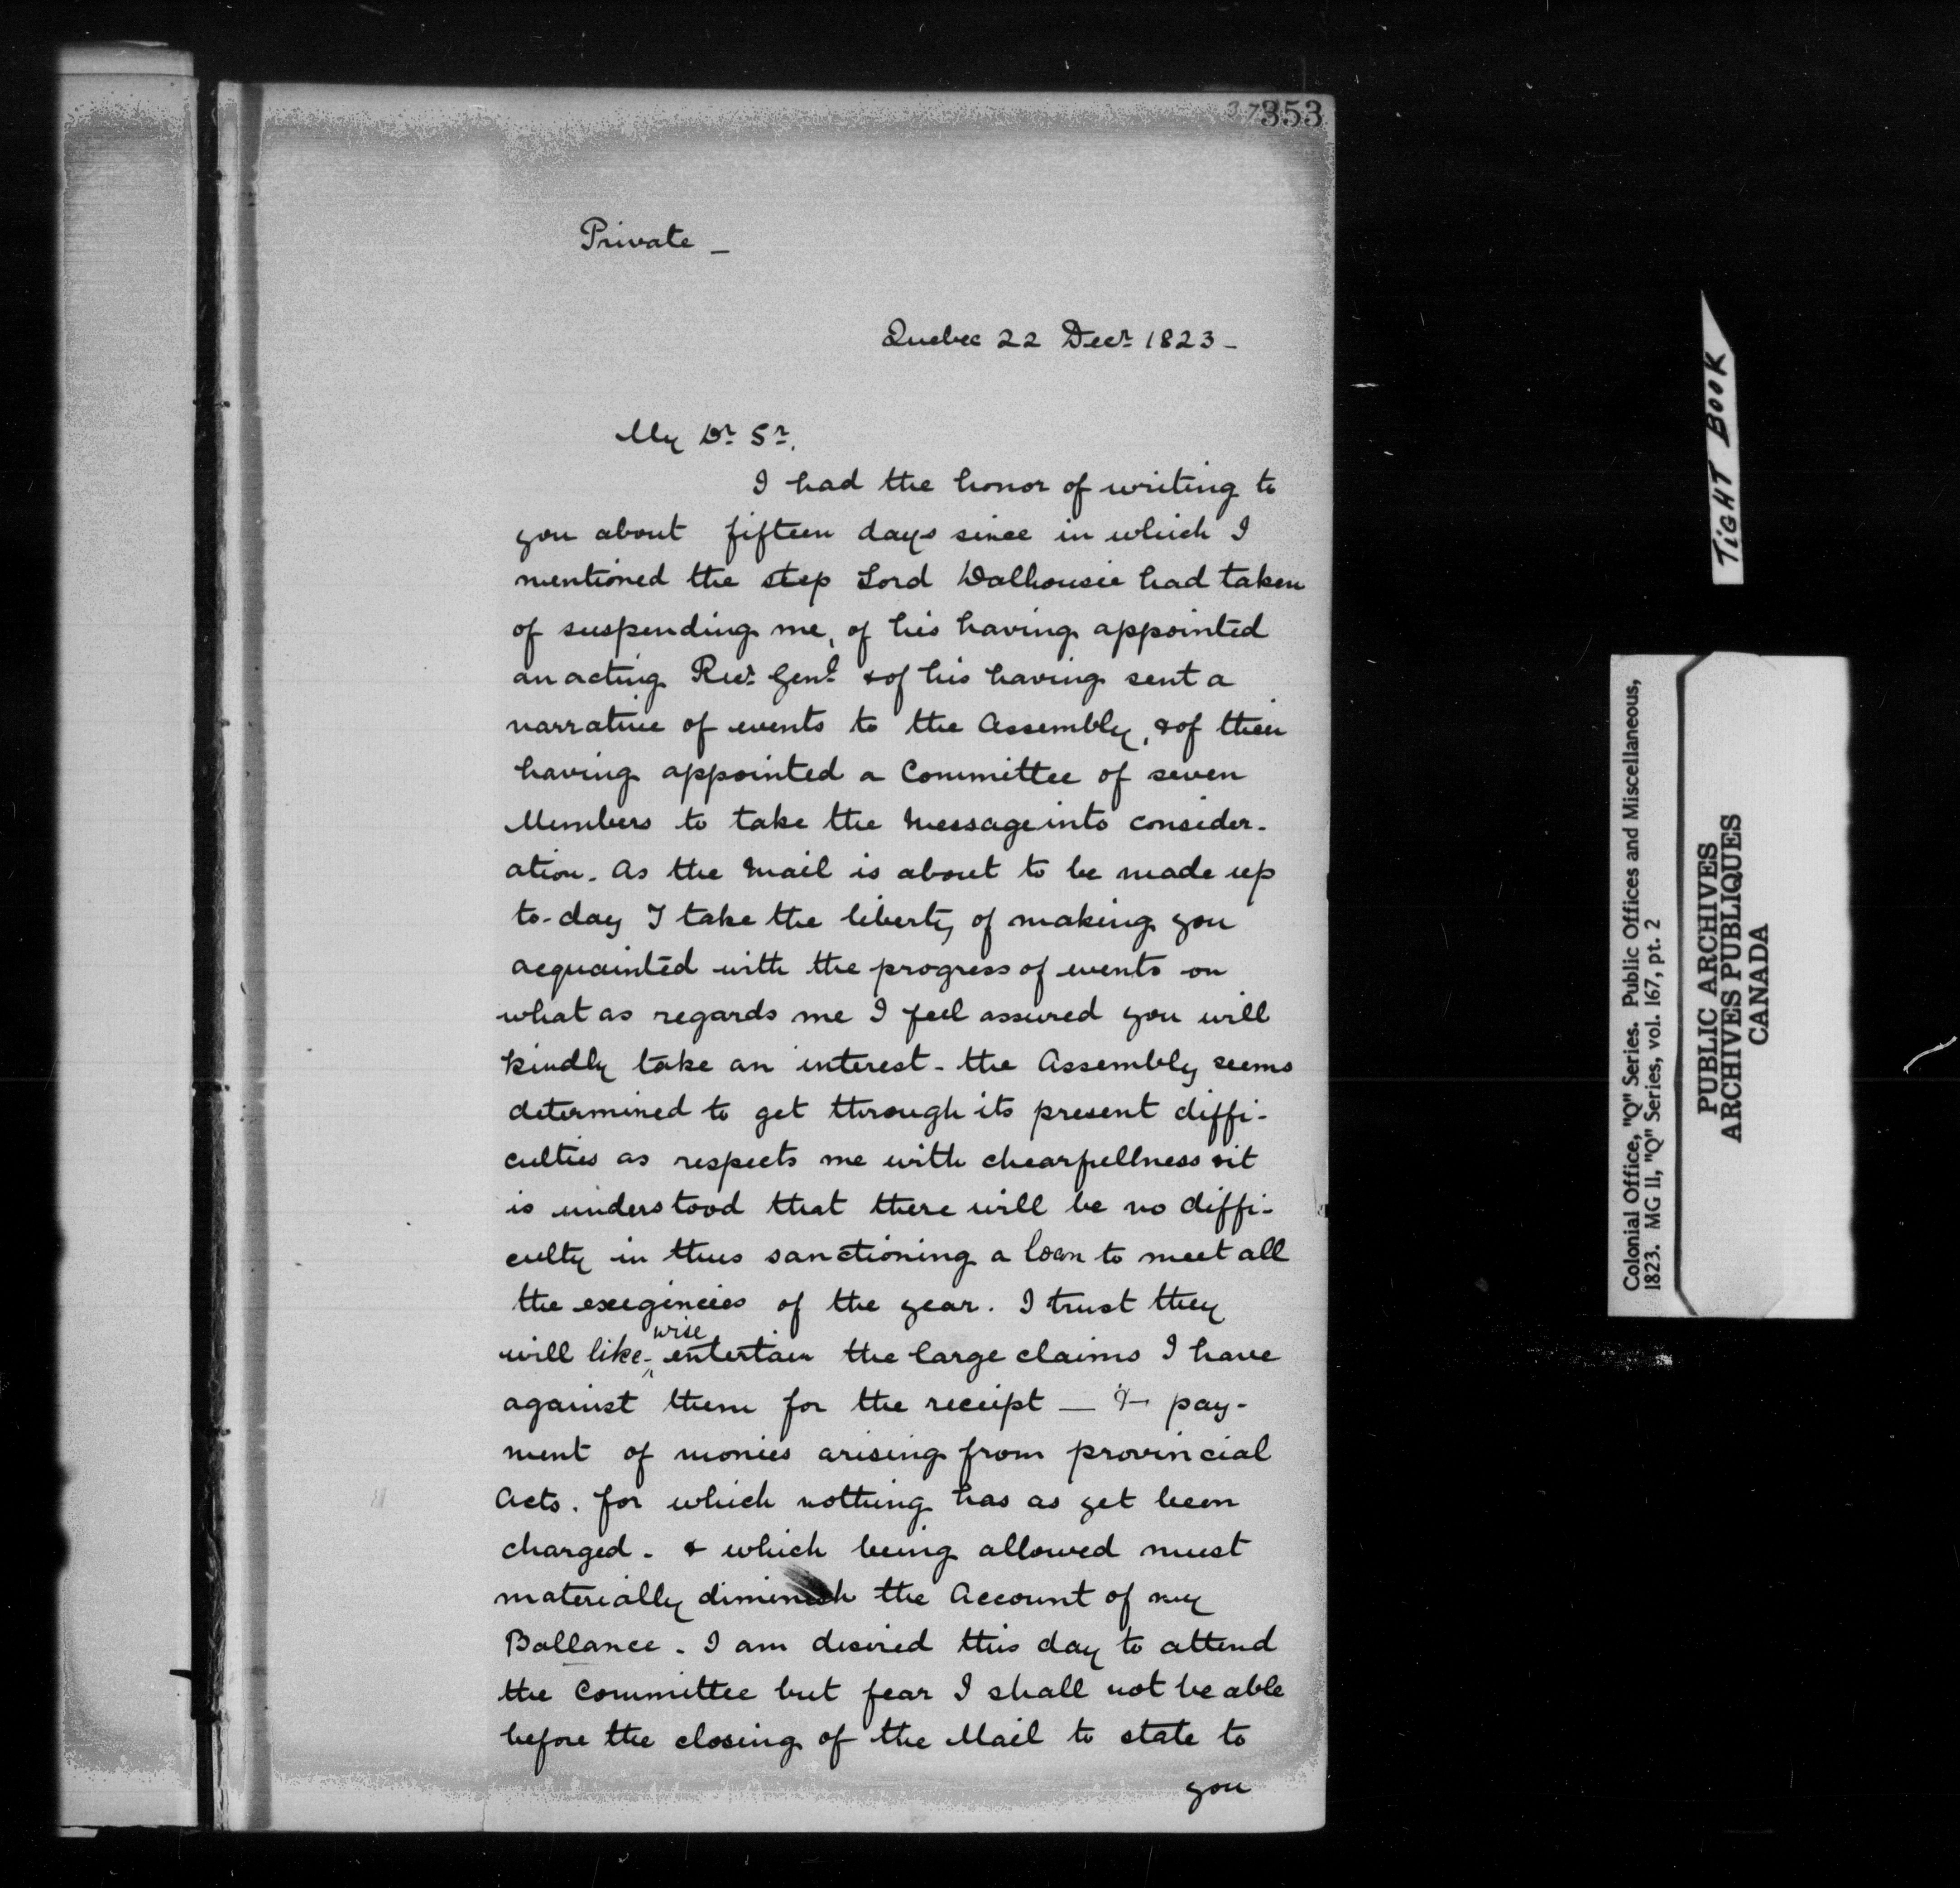 353
Private _
Quebec 22 Decr. 1823 -
My Dr. Sr.
I had the honor of writing to
you about fifteen days since in which I
mentioned the step Lord Dalhousie had taken
of suspending me, of his having appointed
an acting Recr. Genl. & of his having sent a
narrative of events to the Assembly, & of their
having appointed a Committee of seven
Members to take the Message into consider-
ation. As the Mail is about to be made up
to-day I take the liberty of making you
acquainted with the progress of events on
what as regards me I feel assured you will
kindly take an interest - the Assembly seems
determined to get through its present diffi-
culties as respects me with chearfullness & it
is understood that there will be no diffi-
culty in thus sanctioning a loan to meet all
the exigencies of the year. I trust they
will like-wise entertain the large claims I have
against them for the receipt — & pay-
ment of monies arising from provincial
Acts. for which nothing has as yet been
charged. & which being allowed must
materially diminish the Account of my
Ballance. I am desired this day to attend
the Committee but fear I shall not be able
before the closing of the Mail to state to
you
TIGHT BOOK
Colonial Office, "Q" Series. Public Offices and Miscellaneous,
1823. MG 11, "Q" Series, vol. 167, pt. 2
PUBLIC ARCHIVES
ARCHIVES PUBLIQUES
CANADA